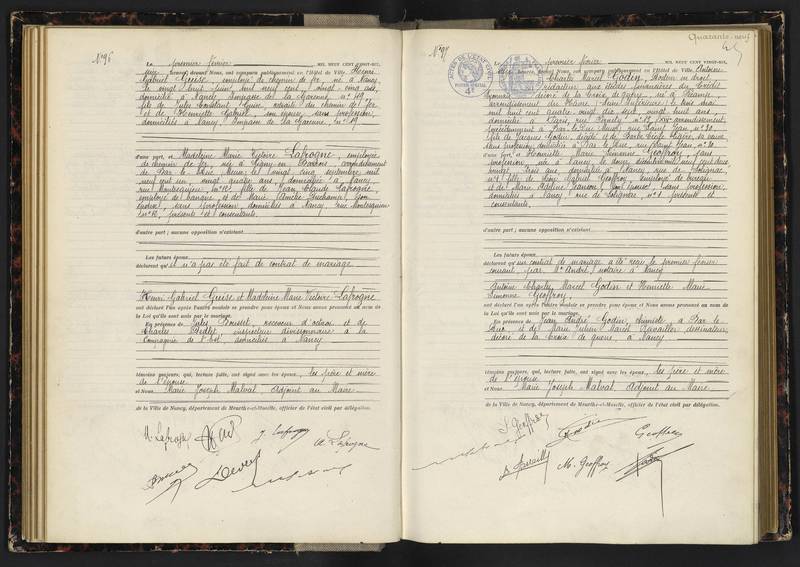 N° 96
Le premier février MIL NEUF CENT VINGT-SIX,
onze heures, devant Nous, ont comparu publiquement en l'Hôtel de Ville, Henri
Gabriel Guise, employé de chemin de fer, né à Nancy
le vingt huit juin mil neuf cent, vingt cinq ans,
domicilié à Nancy, Impasse de la Garenne, n° 119
fils de Jules Constant Guise, retraité du chemin de fer
et de Henriette Gabriel, son épouse, sans profession,
domiciliés à Nancy, Impasse de La Garenne, n° 119
d'une part, et Madeleine Marie Victoire Lafrogne, employée
de chemin de fer, née à Ligny-en-Barrois, arrondissement
de Bar le Duc, Meuse, le vingt cinq septembre mil
neuf cent un, vingt quatre ans, domiciliée à Nancy
rue Montesquieu, n° 12, fille de Jean Claude Lafrogne,
employé de banque, et de Marie Amélie Duchamp, son
épouse, sans profession, domiciliés à Nancy, rue Montesquieu
n° 12, présents et consentants.
d'autre part; aucune opposition n'existant.
Les futurs époux
déclarent qu'il n'a pas été fait de contrat de mariage
Henri Gabriel Guise et Madeleine Marie Victoire Lafrogne
ont déclaré l'un après l'autre vouloir se prendre pour époux et Nous avons prononcé au nom de
la Loi qu'ils sont unis par le mariage.
En présence de Jules Housset, receveur d'octroi, et de
Charles Bridet, inspecteur divisionnaire à la
Compagnie de l'Est, domiciliés à Nancy
témoins majeurs, qui, lecture faite, ont signé avec les époux, les père et mère
de l'épouse
et Nous, Marie Joseph Malval, Adjoint au Maire
de la Ville de Nancy, département de Meurthe-et-Moselle, officier de l'état civil par délégation.
M. Lafrogne
J. Lafrogne
A. Lafrogne
Quarante-neuf
49
N° 97
Le premier février MIL NEUF CENT VINGT-SIX,
heures, devant Nous, ont comparu publiquement en l'Hôtel de Ville, Antoine
Charles Marcel Godin, Docteur en droit,
rédacteur aux études financières du Crédit
Lyonnais, décoré de la Croix de guerre, né à Fécamp
arrondissement du Havre (Seine Inférieure) le trois mai
mil huit cent quatre vingt dix sept, vingt huit ans
domicilié à Paris, rue
précédemment à Bar-le-Duc Meuse, rue Saint Jean n° 30,
fils de Jacques Godin, décédé, et de
sans profession, domiciliée à Bar le Duc, rue Saint Jean, n° 30.
d'une part, et Henriette Marie Simonne Geoffroy, sans
profession, née à Nancy, le
trois ans, domiciliée à Nancy, rue de Solignac
n° 1, fille de Henri Gabriel Geoffroy, employé de bureau
et de Marie Adeline son épouse, sans profession,
domiciliés à Nancy, rue de Solignac, n° 1, présents et
consentants.
d'autre part; aucune opposition n'existant.
Les futurs époux
déclarent qu'un contrat de mariage a été reçu le premier février
courant, par Me André, notaire à Nancy
Antoine Charles Marcel Godin et Henriette Marie
Simonne Geoffroy,
ont déclaré l'un après l'autre vouloir se prendre pour époux et Nous avons prononcé au nom de
la Loi qu'ils sont unis par le mariage.
En présence de Jean André Godin, chimiste, à Bar le
Duc, et de Marie Julien Marcel dessinateur,
décoré de la Croix de guerre, à Nancy
témoins majeurs, qui, lecture faite, ont signé avec les époux, les père et mère
de l'épouse
et Nous, Marie Joseph Malval, Adjoint au Maire
de la Ville de Nancy, département de Meurthe-et-Moselle, officier de l'état civil par délégation.
S. Geoffroy
Geoffroy
M. Geoffroy